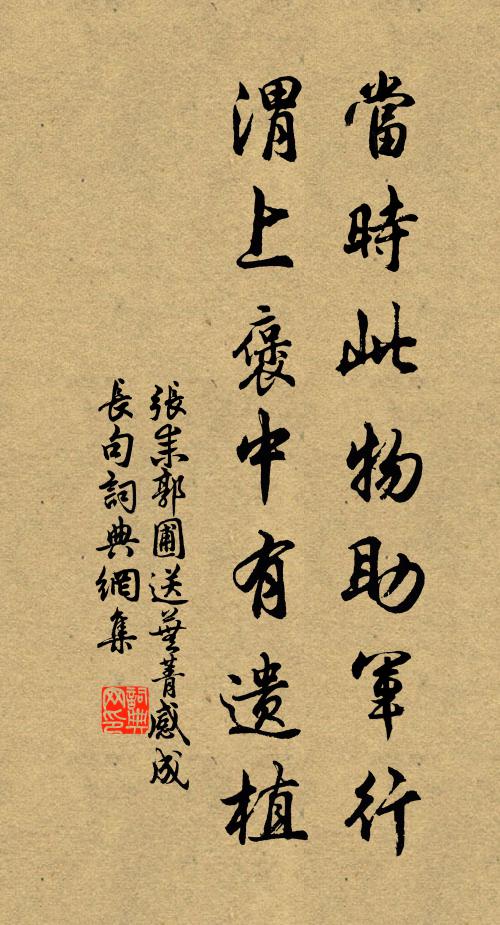 當時此物助軍行
渭上褒中有遺植
張耒郭圃送蕪菁感成
長句詞典網集
詞典網印